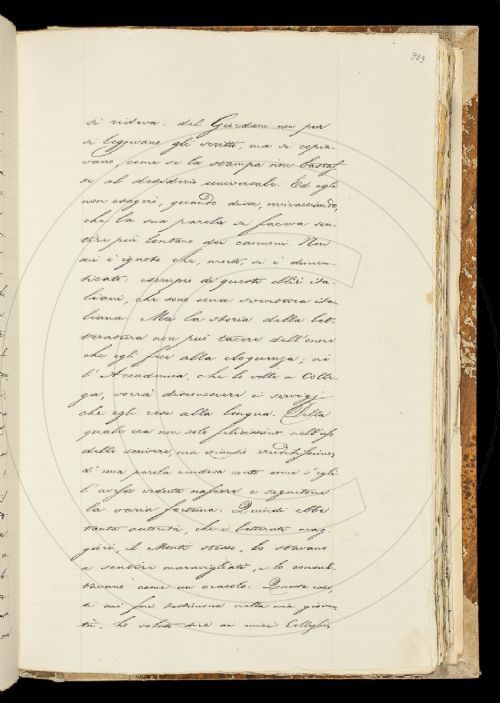 909
si rideva: del Giordani non pur
si leggevano gli scritti, ma si copia-
vano, come se la stampa non bastas-
se al desiderio universale. Ed egli
non esagerò, quando disse, minacciando,
che la sua parola si faceva sen-
tire più lontano dei cannoni. Non
mi è ignoto che, morto, si è dimen-
ticato: esempio di questo oblii ita-
liani, che sono una sventura ita-
liana. Ma la storia della let-
teratura non può tacere dell'onore
che egli fece alla eloquenza; nè
l'Accademia, che lo volle a Colle-
ga, vorrà disconoscere i servigj
che egli rese alla lingua. Della
quale era non solo felicissimo nell'uso
dello scrivere, ma eziandio eruditissimo;
d'una parola rendeva conto come s'egli
l'avesse veduta nascere e seguitone
la varia fortuna. Quindi ebbe
tanta autorità, che i letterati mag-
giori, il Monti stesso, lo stavano
a sentire maravigliati, e lo consul-
tavano come un oracolo. Queste cose,
a cui fui testimone nella mia gioven-
tù, ho voluto dire ai miei Colleghi,